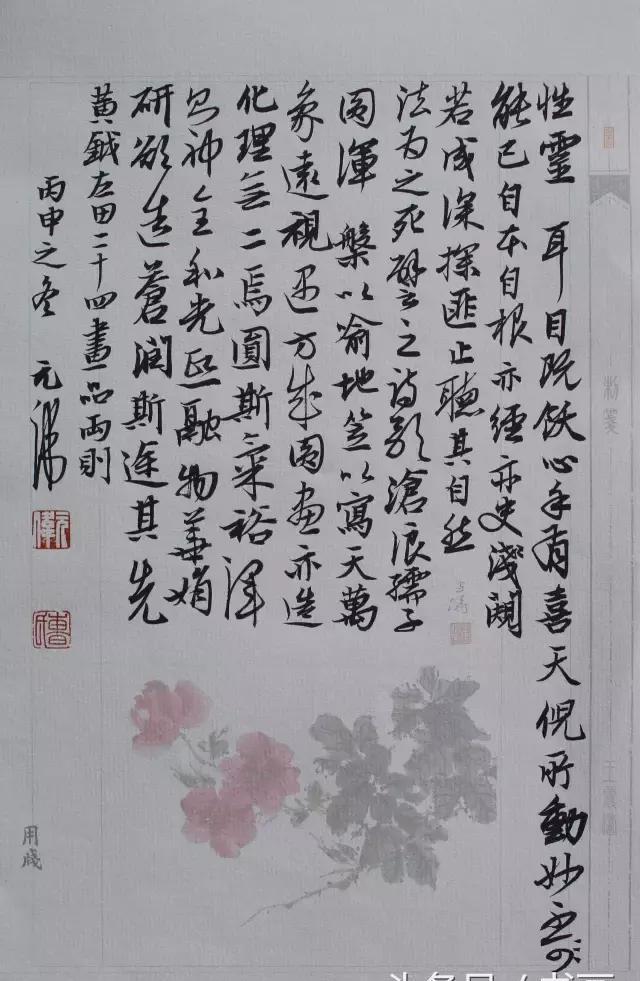 性靈 耳目既飫心手有喜天倪所動妙不可
能已自本自根亦經亦史淺闚
若成深探匪止聽其自然
法為之死譬之詩歌滄浪孺子
圓渾 槃以喻地笠以寫天萬
象遠視遇方成圓畫亦造
化理無二焉圓斯氣裕渾
則神全和光熙融物華娟
研欲造蒼潤斯途其先
黃鉞左田二十四畫品兩則
丙申之冬 元
用牋